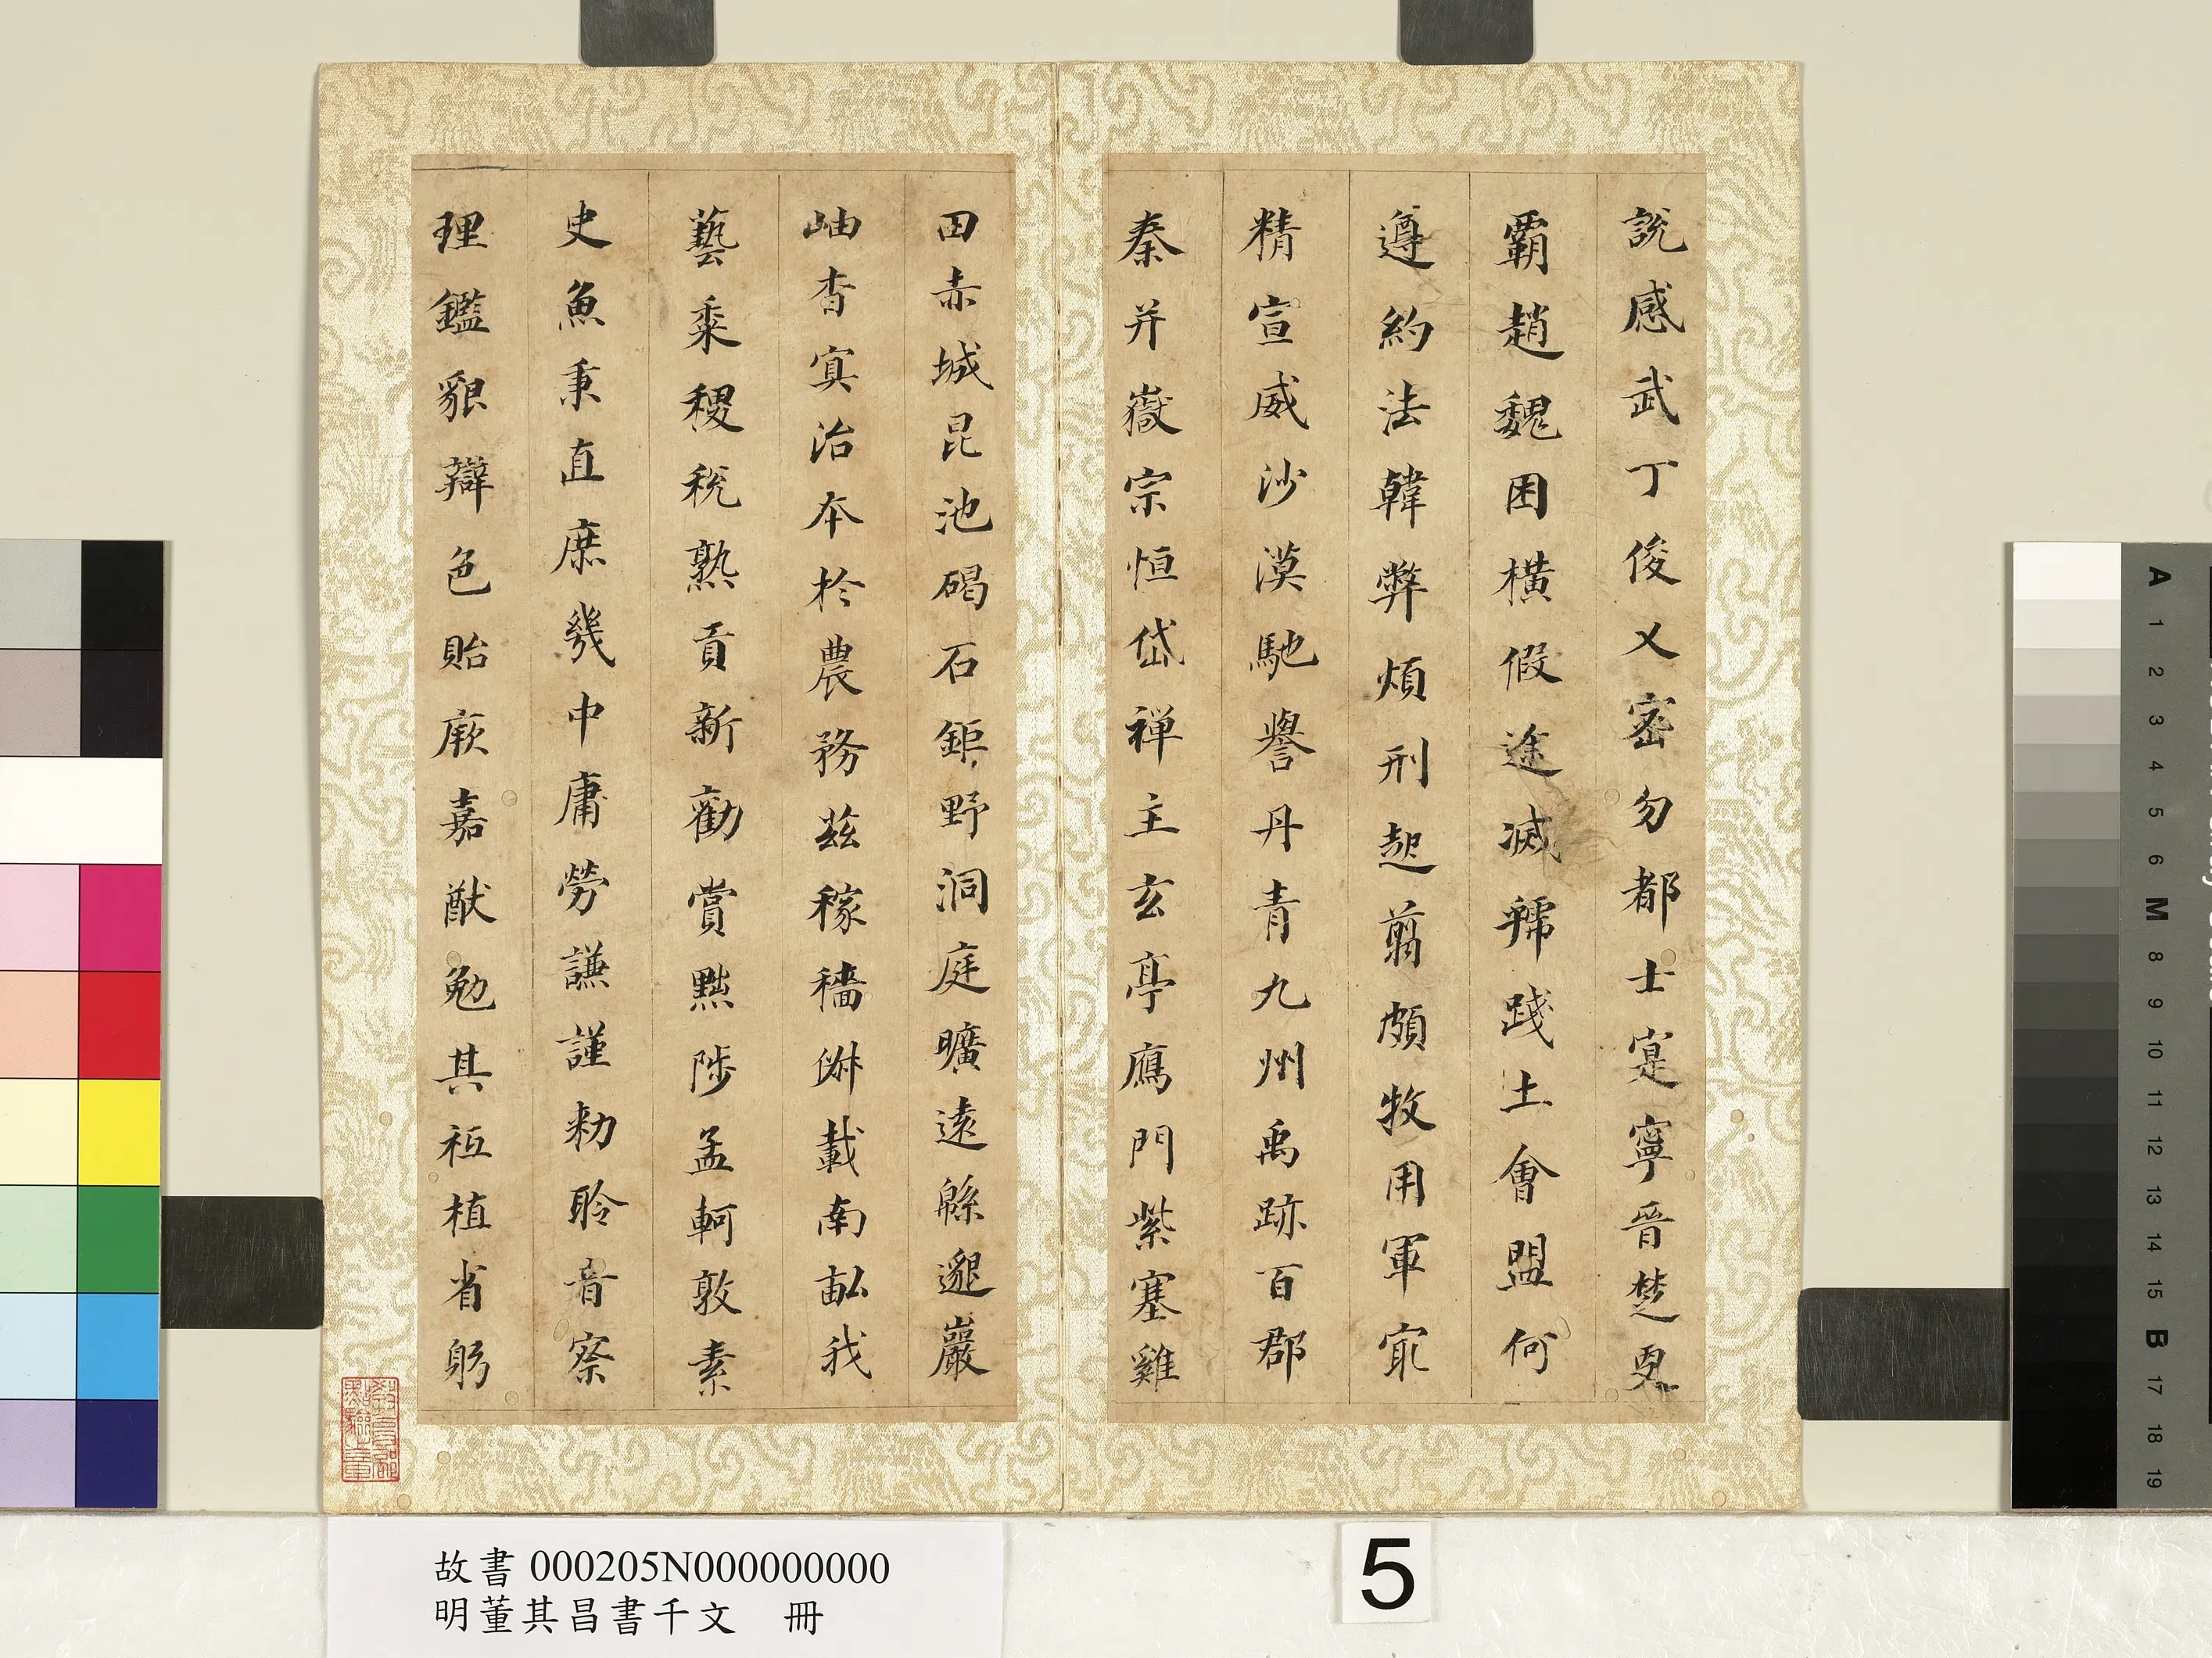 說感武丁俊乂密勿都士寔寧晉楚更
霸趙魏困橫假途滅虢踐土會盟何
遵約法韓弊煩刑起翦頗牧用軍冣
精宣威沙漠馳譽丹青九州禹跡百郡
秦并嶽宗恒岱禪主玄亭鴈門紫塞雞
田赤城昆池碣石鉅野洞庭曠遠緜邈巖
岫杳冥治本於農務茲稼穡俶載南畝我
藝黍稷稅熟貢新勸賞黜陟孟軻敦素
史魚秉直庶幾中庸勞謙謹勑聆音察
理鑑貌辯色貽厥嘉猷勉其祗植省躬
教育部點驗之章
故書 000205N000000000
明董其昌書千文 冊
5
A 1 2 3 4 5 6 M 8 9 10 11 12 13 14 15 B 17 18 19